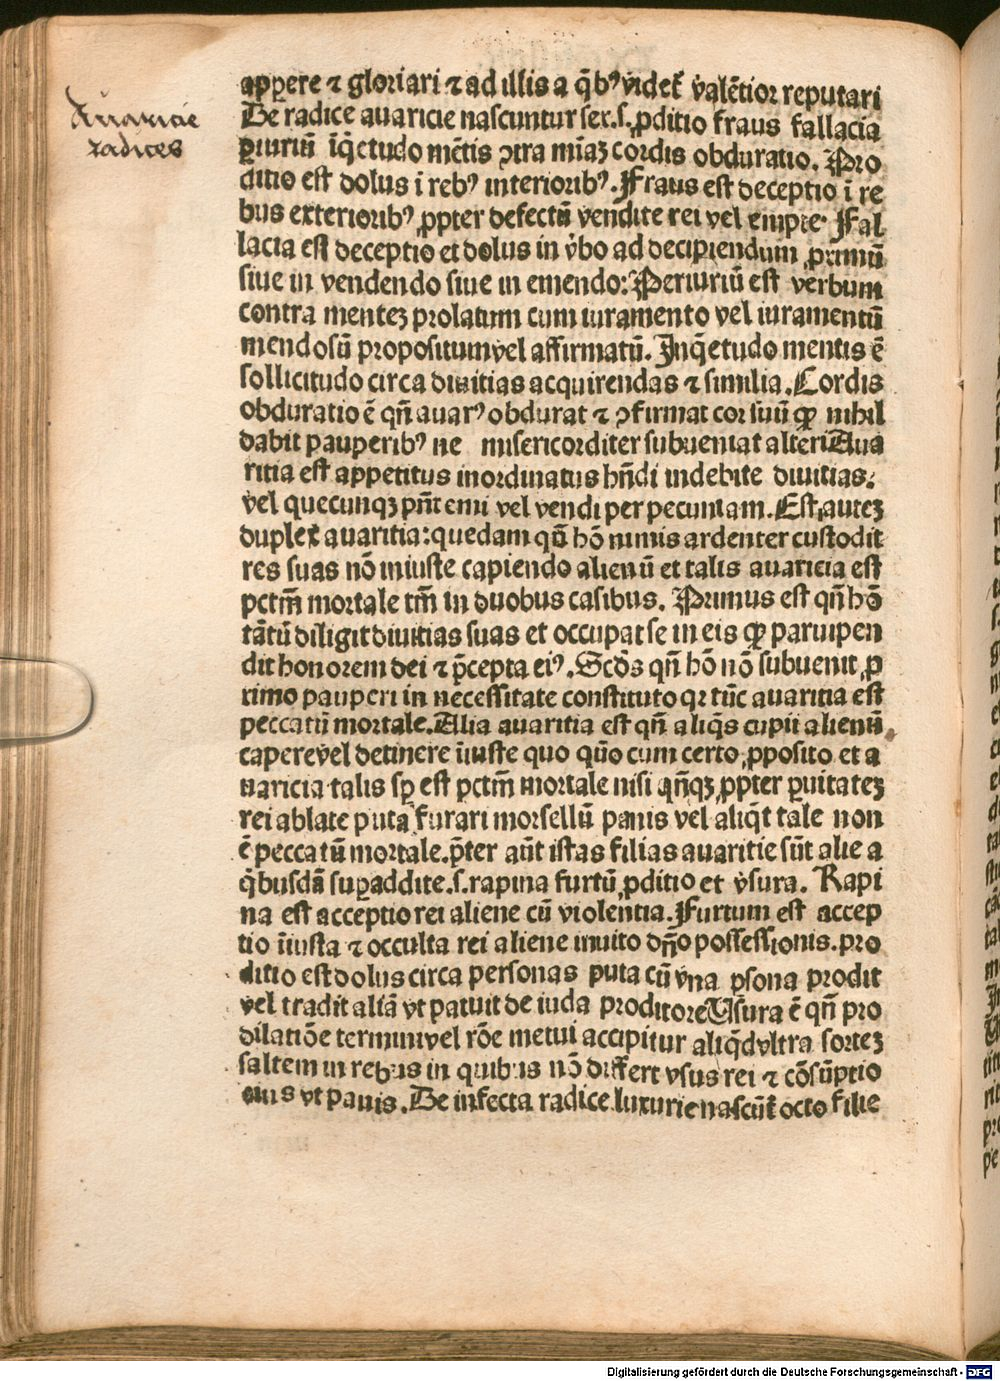 Auaricie
radices
apꝑere ⁊ gloriari ⁊ ad illis a q̄bꝰ videt᷑ valētior reputari
De radice auaricie nascuntur sex .s. ꝓditio fraus fallacia
ꝑiuriū īq̄etudo mētis ꝯtra mīaꝫ cordis obduratio. Pro
ditio est dolus ī rebꝰ interioribꝰ. Fraus est deceptio ī re
bus exterioribꝰ ꝓpter defectū vendite rei vel empte. Fal
lacia est deceptio et dolus in v̄bo ad decipiendum ꝓximū
siue in vendendo siue in emendo: Periuriū est verbum
contra menteꝫ prolatum cum iuramento vel iuramentū
mendosū propositum vel affirmatū. Inq̄etudo mentis ē
sollicitudo circa diuitias acquirendas ⁊ similia. Cordis
obduratio ē qn̄ auarꝰ obdurat ⁊ ꝯfirmat cor suū ꝙ nihil
dabit pauperibꝰ ne misericorditer subueniat alteri Aua
ritia est appetitus inordinatus hn̄di indebite diuitias.
vel quecunqꝫ pn̄t emi vel vendi per pecuniam. Est auteꝫ
duplex auaritia: quedam qū hō nimis ardenter custodit
res suas nō iniuste capiendo alienū et talis auaricia est
pctm̄ mortale tm̄ in duobus casibus. Primus est qn̄ hō
tātū diligit diuitias suas et occupat se in eis ꝙ paruipen
dit honorem dei ⁊ p̄cepta eiꝰ. Scd̄s qn̄ hō nō subuenit ꝓ
ximo pauperi in necessitate constituto qꝛ tūc auaritia est
peccatū mortale. Alia auaritia est qn̄ aliq̄s cupit alienū
capere vel detinere īiuste quo qūo cum certo ꝓposito et a
uaricia talis sꝑ est pctm̄ mortale nisi qn̄qꝫ ꝓpter ꝑuitateꝫ
rei ablate puta furari morsellū panis vel aliq̄t tale non
ē peccatū mortale. p̄ter aūt istas filias auaritie sūt alie a
q̄busdā suꝑaddite .s. rapina furtū ꝓditio et vsura. Rapi
na est acceptio rei aliene cū violentia. Furtum est accep
tio īiusta ⁊ occulta rei aliene inuito dn̄o possessionis. pro
ditio est dolus circa personas puta cū vna ꝑsona prodit
vel tradit aliā vt patuit de iuda proditore Usura ē qn̄ pro
dilatiōe termini vel rōe metui accipitur aliq̄d vltra sorteꝫ
saltem in rebus in quibus nō differt vsus rei ⁊ cōsūptio
eius vt panis. De infecta radice luxurie nascūt᷑ octo filie
Digitalisierung gefördert durch die Deutsche Forschungsgemeinschaft - DFG